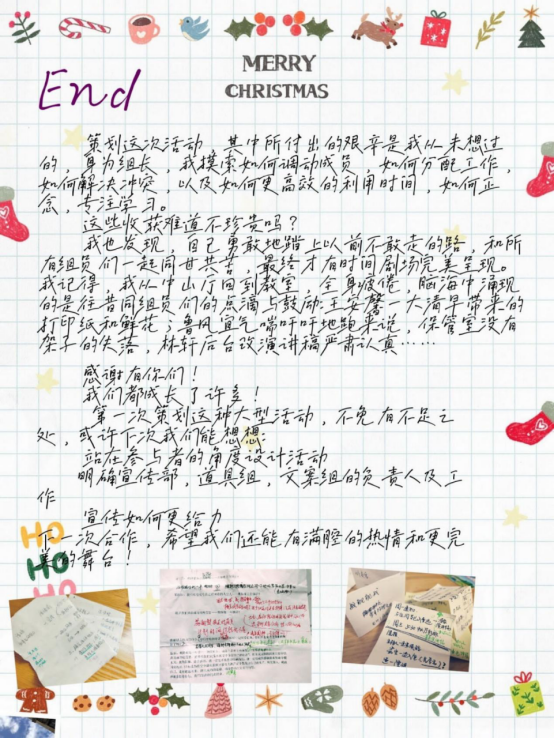 MERRY
CHRISTMAS
End
策划这次活动，其中所付出的艰辛是我从未想过
的，身为组长，我摸索如何调动成员，如何分配工作，
如何解决冲突，以及如何更高效的利用时间，如何正
念，专注学习。
这些收获难道不珍贵吗？
我也发现，自己勇敢地踏上以前不敢走的路，和所
有组员们一起同甘共苦，最终才有时间剧场完美呈现。
我记得，我从中山厅回到教室，全身疲倦，脑海中涌现
的是往昔同组员们的点滴与鼓励：王安馨一大清早带来的
打印纸和鲜花；鲁风宜气喘吁吁地跑来说，保管室没有
架子的失落，林轩后台改演讲稿严肃认真……
感谢有你们！
我们都成长了许多！
第一次策划这种大型活动，不免有不足之
处，或许下次我们能想想：
站在参与者的角度设计活动
明确宣传部，道具组，文案组的负责人及工
作
宣传如何更给力
下一次合作，希望我们还能有满腔的热情和更完
美的舞台！
HO
HO
HO